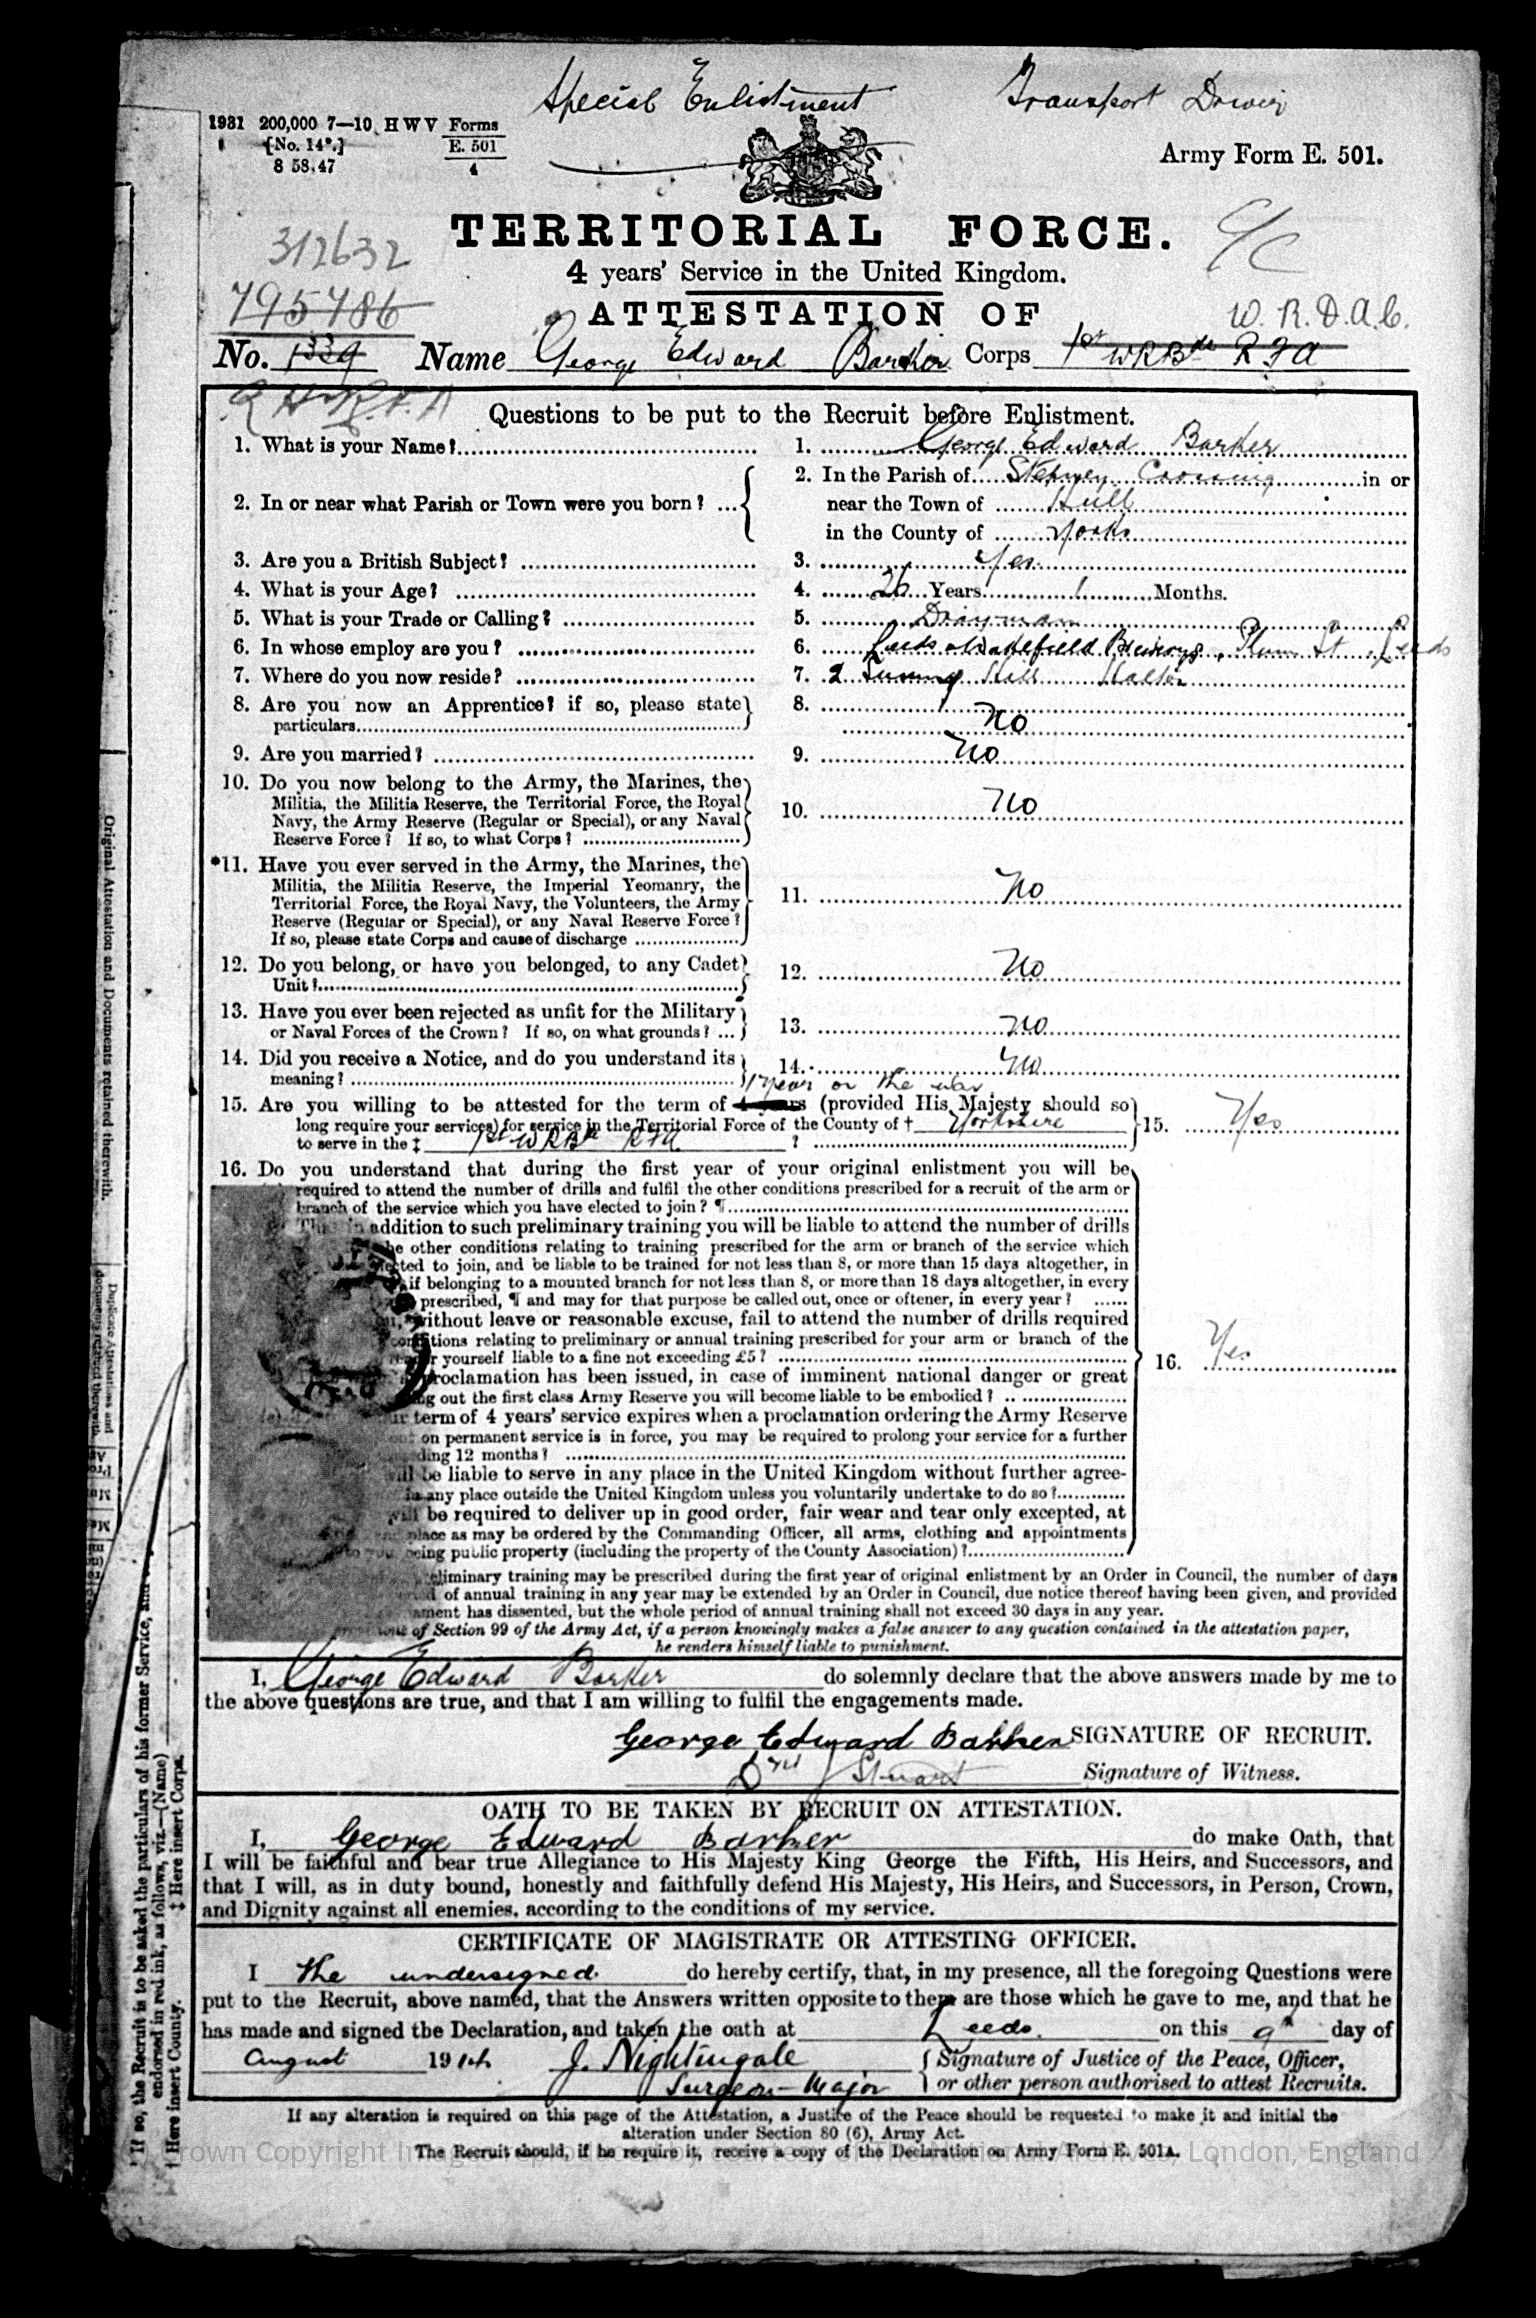 Special Enlistment Transport Driver
1931 200,000 7—10 H W V Forms
[No. 14*.] E. 501
8 58.47 4
Army Form E. 501.
312632
TERRITORIAL FORCE.
4 years' Service in the United Kingdom.
795786
ATTESTATION OF
W. R. D. A. C.
No. 1339 Name George Edward Barker Corps 1st WRBde R F A
R H & R.F.A
Questions to be put to the Recruit before Enlistment.
1. What is your Name? 1. George Edward Barker
2. In or near what Parish or Town were you born? ... 2. In the Parish of Stepney Crossing in or
near the Town of Hull
in the County of Yorks
3. Are you a British Subject? 3. Yes
4. What is your Age? 4. 26 Years 1 Months.
5. What is your Trade or Calling? 5. Drayman
6. In whose employ are you? 6. Leeds & Wakefield Brewerys, Plum St Leeds
7. Where do you now reside? 7. 2 Hill Halton
8. Are you now an Apprentice? if so, please state 8.
particulars No
9. Are you married? 9. No
10. Do you now belong to the Army, the Marines, the
Militia, the Militia Reserve, the Territorial Force, the Royal
Navy, the Army Reserve (Regular or Special), or any Naval
Reserve Force? If so, to what Corps? 10. No
*11. Have you ever served in the Army, the Marines, the
Militia, the Militia Reserve, the Imperial Yeomanry, the
Territorial Force, the Royal Navy, the Volunteers, the Army
Reserve (Regular or Special), or any Naval Reserve Force?
If so, please state Corps and cause of discharge 11. No
12. Do you belong, or have you belonged, to any Cadet
Unit? 12. No
13. Have you ever been rejected as unfit for the Military
or Naval Forces of the Crown? If so, on what grounds? ... 13. No
14. Did you receive a Notice, and do you understand its
meaning? 14. No
1 year or the war
15. Are you willing to be attested for the term of 4 years (provided His Majesty should so
long require your services) for service in the Territorial Force of the County of † Yorkshire
to serve in the ‡ 1st WRBde RFA ? 15. Yes
16. Do you understand that during the first year of your original enlistment you will be
required to attend the number of drills and fulfil the other conditions prescribed for a recruit of the arm or
branch of the service which you have elected to join? ¶
addition to such preliminary training you will be liable to attend the number of drills
the other conditions relating to training prescribed for the arm or branch of the service which
elected to join, and be liable to be trained for not less than 8, or more than 15 days altogether, in
if belonging to a mounted branch for not less than 8, or more than 18 days altogether, in every
prescribed, ¶ and may for that purpose be called out, once or oftener, in every year?
without leave or reasonable excuse, fail to attend the number of drills required
conditions relating to preliminary or annual training prescribed for your arm or branch of the
yourself liable to a fine not exceeding £5?
16. Yes
proclamation has been issued, in case of imminent national danger or great
out the first class Army Reserve you will become liable to be embodied?
term of 4 years' service expires when a proclamation ordering the Army Reserve
on permanent service is in force, you may be required to prolong your service for a further
12 months?
will be liable to serve in any place in the United Kingdom without further agree-
in any place outside the United Kingdom unless you voluntarily undertake to do so?
will be required to deliver up in good order, fair wear and tear only excepted, at
place as may be ordered by the Commanding Officer, all arms, clothing and appointments
to you, being public property (including the property of the County Association)?
training may be prescribed during the first year of original enlistment by an Order in Council, the number of days
of annual training in any year may be extended by an Order in Council, due notice thereof having been given, and provided
has dissented, but the whole period of annual training shall not exceed 30 days in any year.
of Section 99 of the Army Act, if a person knowingly makes a false answer to any question contained in the attestation paper,
he renders himself liable to punishment.
I, George Edward Barker do solemnly declare that the above answers made by me to
the above questions are true, and that I am willing to fulfil the engagements made.
George Edward Barker SIGNATURE OF RECRUIT.
Stuart Signature of Witness.
OATH TO BE TAKEN BY RECRUIT ON ATTESTATION.
I, George Edward Barker do make Oath, that
I will be faithful and bear true Allegiance to His Majesty King George the Fifth, His Heirs, and Successors, and
that I will, as in duty bound, honestly and faithfully defend His Majesty, His Heirs, and Successors, in Person, Crown,
and Dignity against all enemies, according to the conditions of my service.
CERTIFICATE OF MAGISTRATE OR ATTESTING OFFICER.
I the undersigned do hereby certify, that, in my presence, all the foregoing Questions were
put to the Recruit, above named, that the Answers written opposite to them are those which he gave to me, and that he
has made and signed the Declaration, and taken the oath at Leeds. on this 9th day of
August 1914 J. Nightingale Signature of Justice of the Peace, Officer,
Surgeon-Major or other person authorised to attest Recruits.
If any alteration is required on this page of the Attestation, a Justice of the Peace should be requested to make it and initial the
alteration under Section 80 (6), Army Act.
The Recruit should, if he require it, receive a copy of the Declaration on Army Form E. 501A.
Original Attestation and Documents retained therewith.
Duplicate Attestations and
documents retained therewith.
* If so, the Recruit is to be asked the particulars of his former Service, and
endorsed in red ink, as follows, viz.—(Name)
† Here insert County. ‡ Here insert Corps.
Crown Copyright Images reproduced by courtesy of The National Archives, London, England